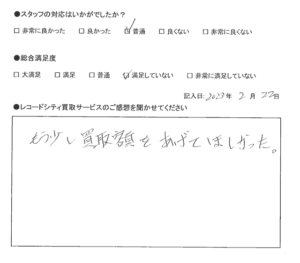 ●スタッフの対応はいかがでしたか？
□ 非常に良かった □ 良かった ☑ 普通 □ 良くない □ 非常に良くない
●総合満足度
□ 大満足 □ 満足 □ 普通 ☑ 満足していない □ 非常に満足していない
記入日: 2023 年 2 月 22 日
●レコードシティ買取サービスのご感想を聞かせてください
もう少し買取額をあげてほしかった。